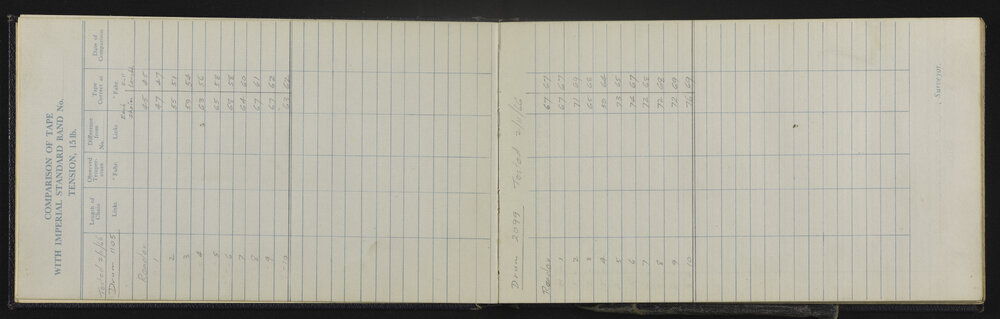 COMPARISON OF TAPE
WITH IMPERIAL STANDARD BAND No.
TENSION, 15 lb.
Length of Chain Links
Observed Temperature ° Fahr.
Difference from No. Links
Tape Correct at ° Fahr.
Date of Comparison
Tested 2/1/66
Drum 1105
Each chain
Full length
Reader 45 45
1 47 47
2 55 51
3 59 54
4 63 56
5 65 58
6 67 58
7 64 60
8 67 61
9 67 62
10 63 62
Drum 2099 Tested 2/1/66
Reader 67 67
1 67 67
2 71 69
3 65 68
4 50 64
5 73 65
6 76 67
7 72 68
8 72 68
9 72 69
10 76 69
, Surveyor.